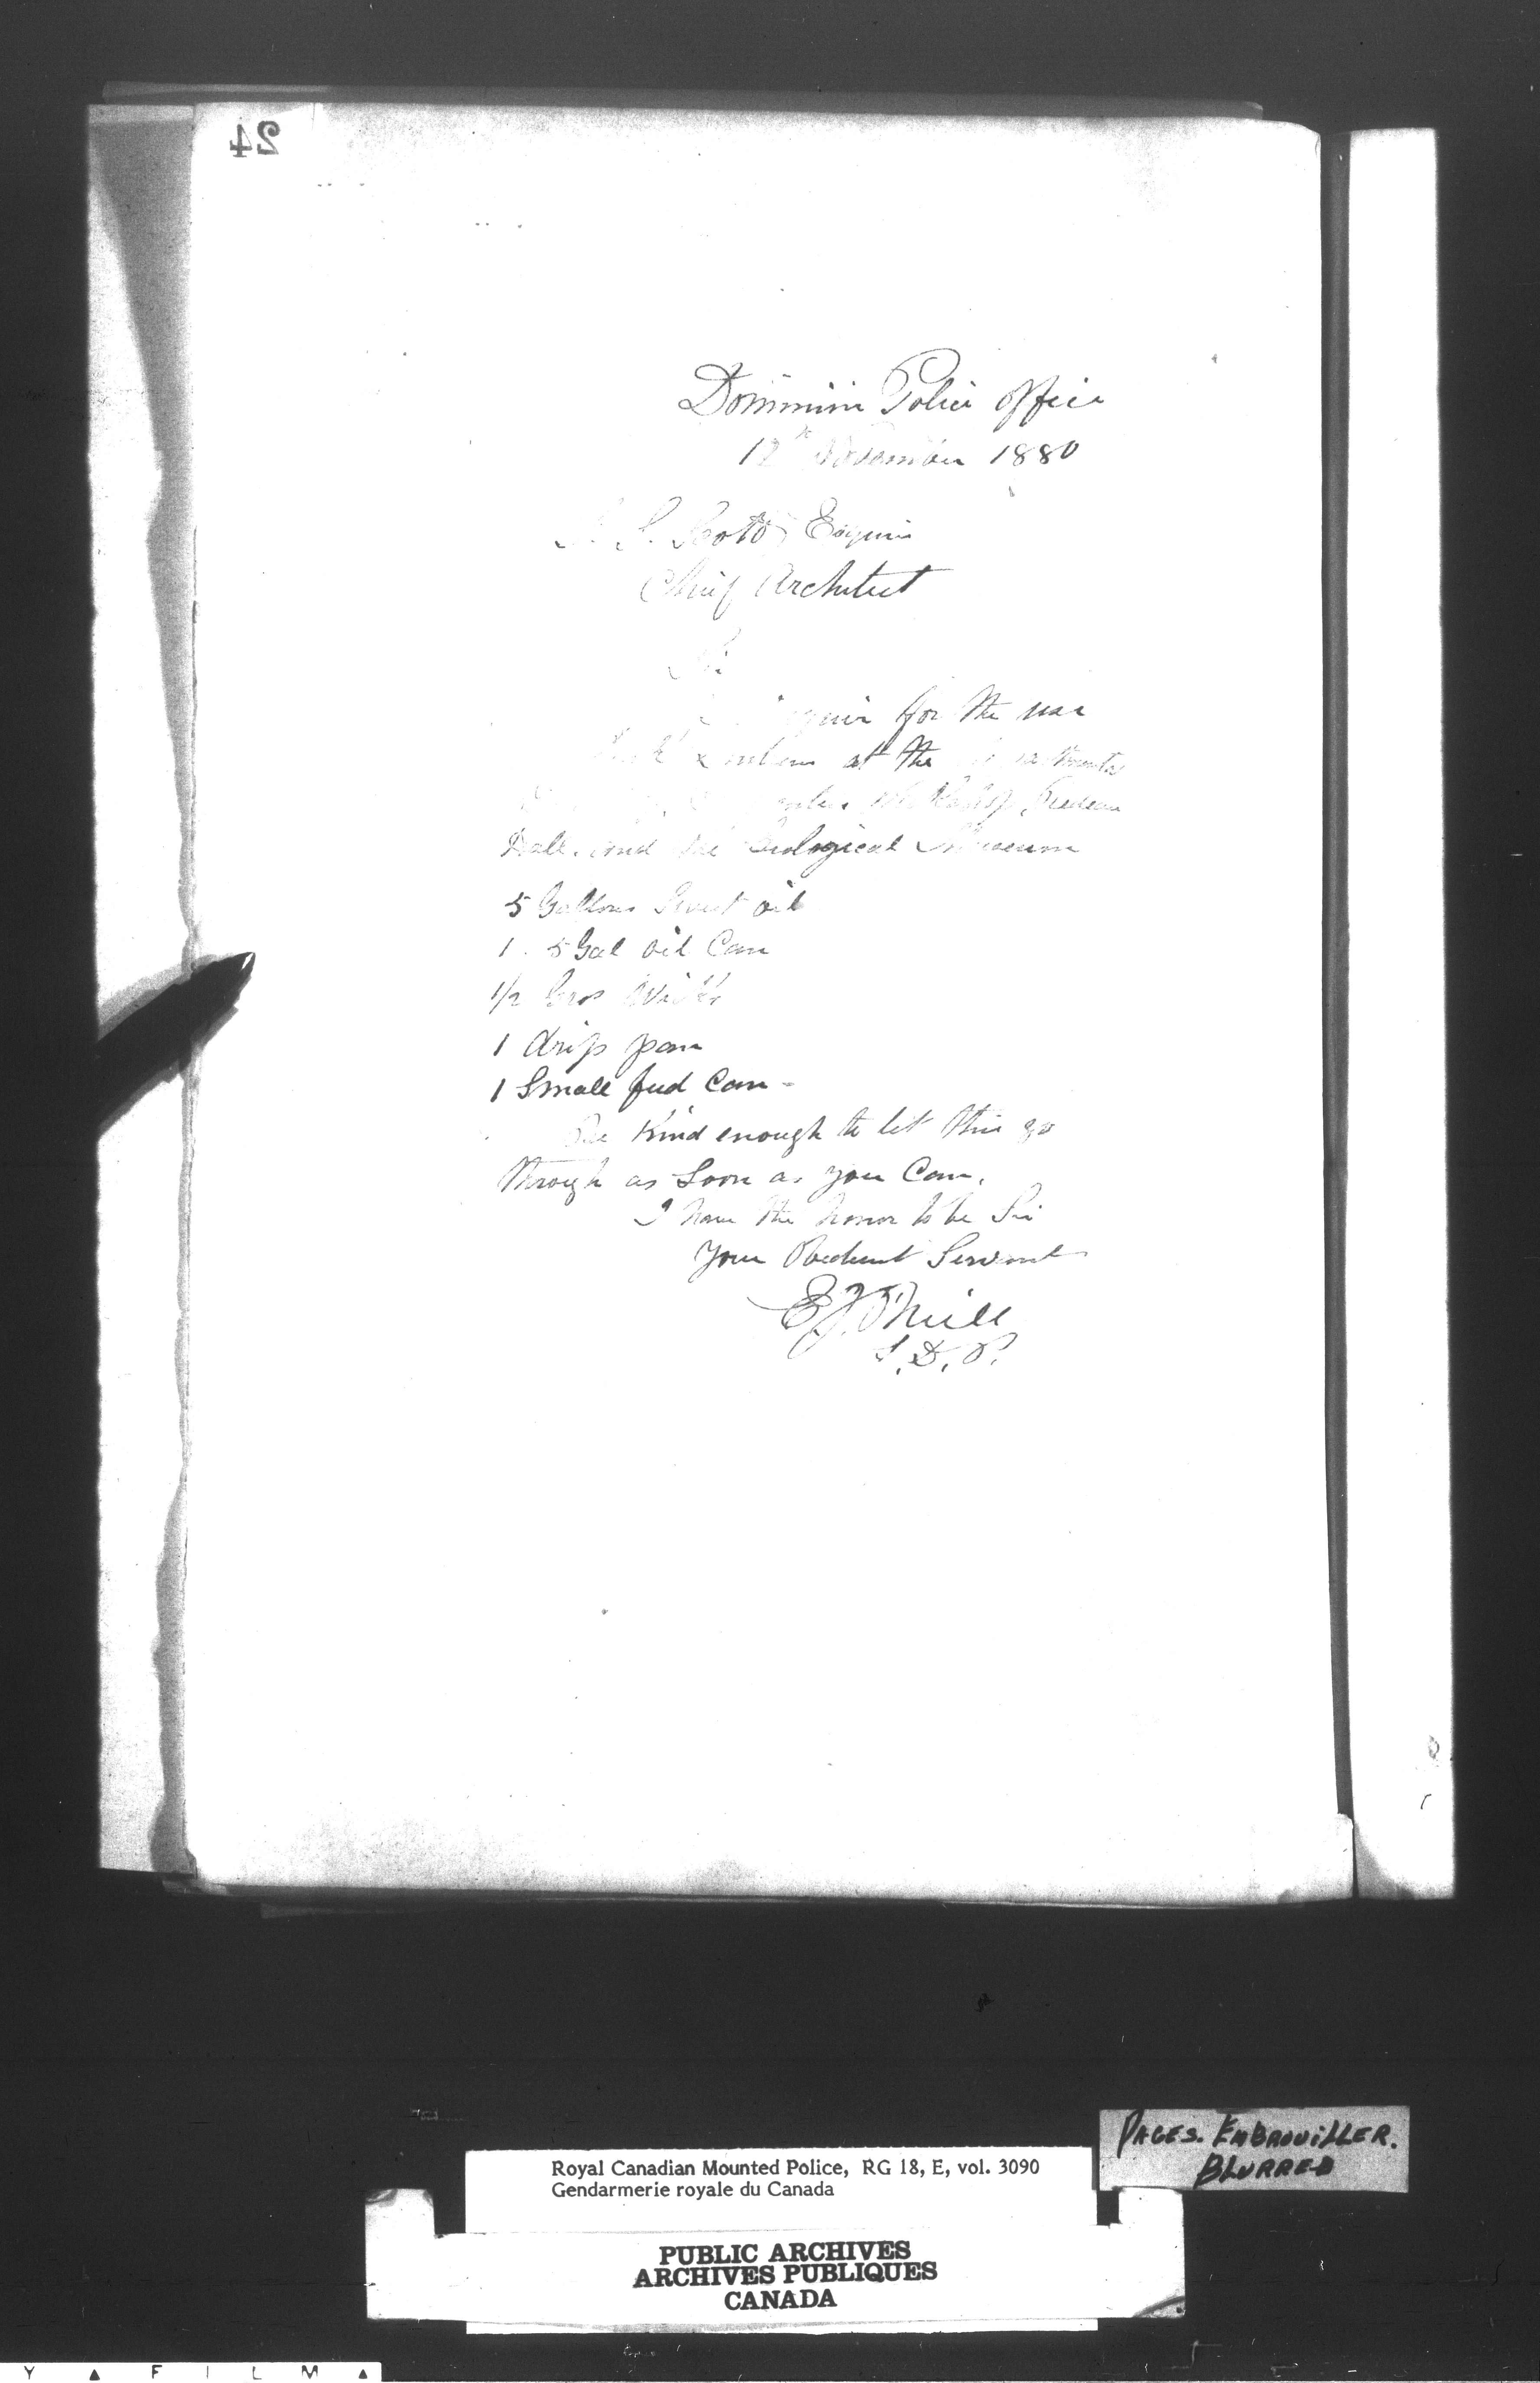 24
Dominion Police Office
12th November 1880
S. Scott Esquire
Chief Architect
Sir
for the use
at the
Rideau
Hall. and the Geological Museum
5 Gallons Sweet oil
1. 5 Gal oil Can
1/2 Gros Wicks
1 drip pan
1 Small feed Can -
Be Kind enough to let this go
through as Soon as you Can.
I have the honor to be Sir
Your Obedient Servant
E.J. O'Neill
S. D. P.
PAGES. EMBROUILLER.
BLURRED
Royal Canadian Mounted Police, RG 18, E, vol. 3090
Gendarmerie royale du Canada
PUBLIC ARCHIVES
ARCHIVES PUBLIQUES
CANADA
Y ▲ F I L M ▲